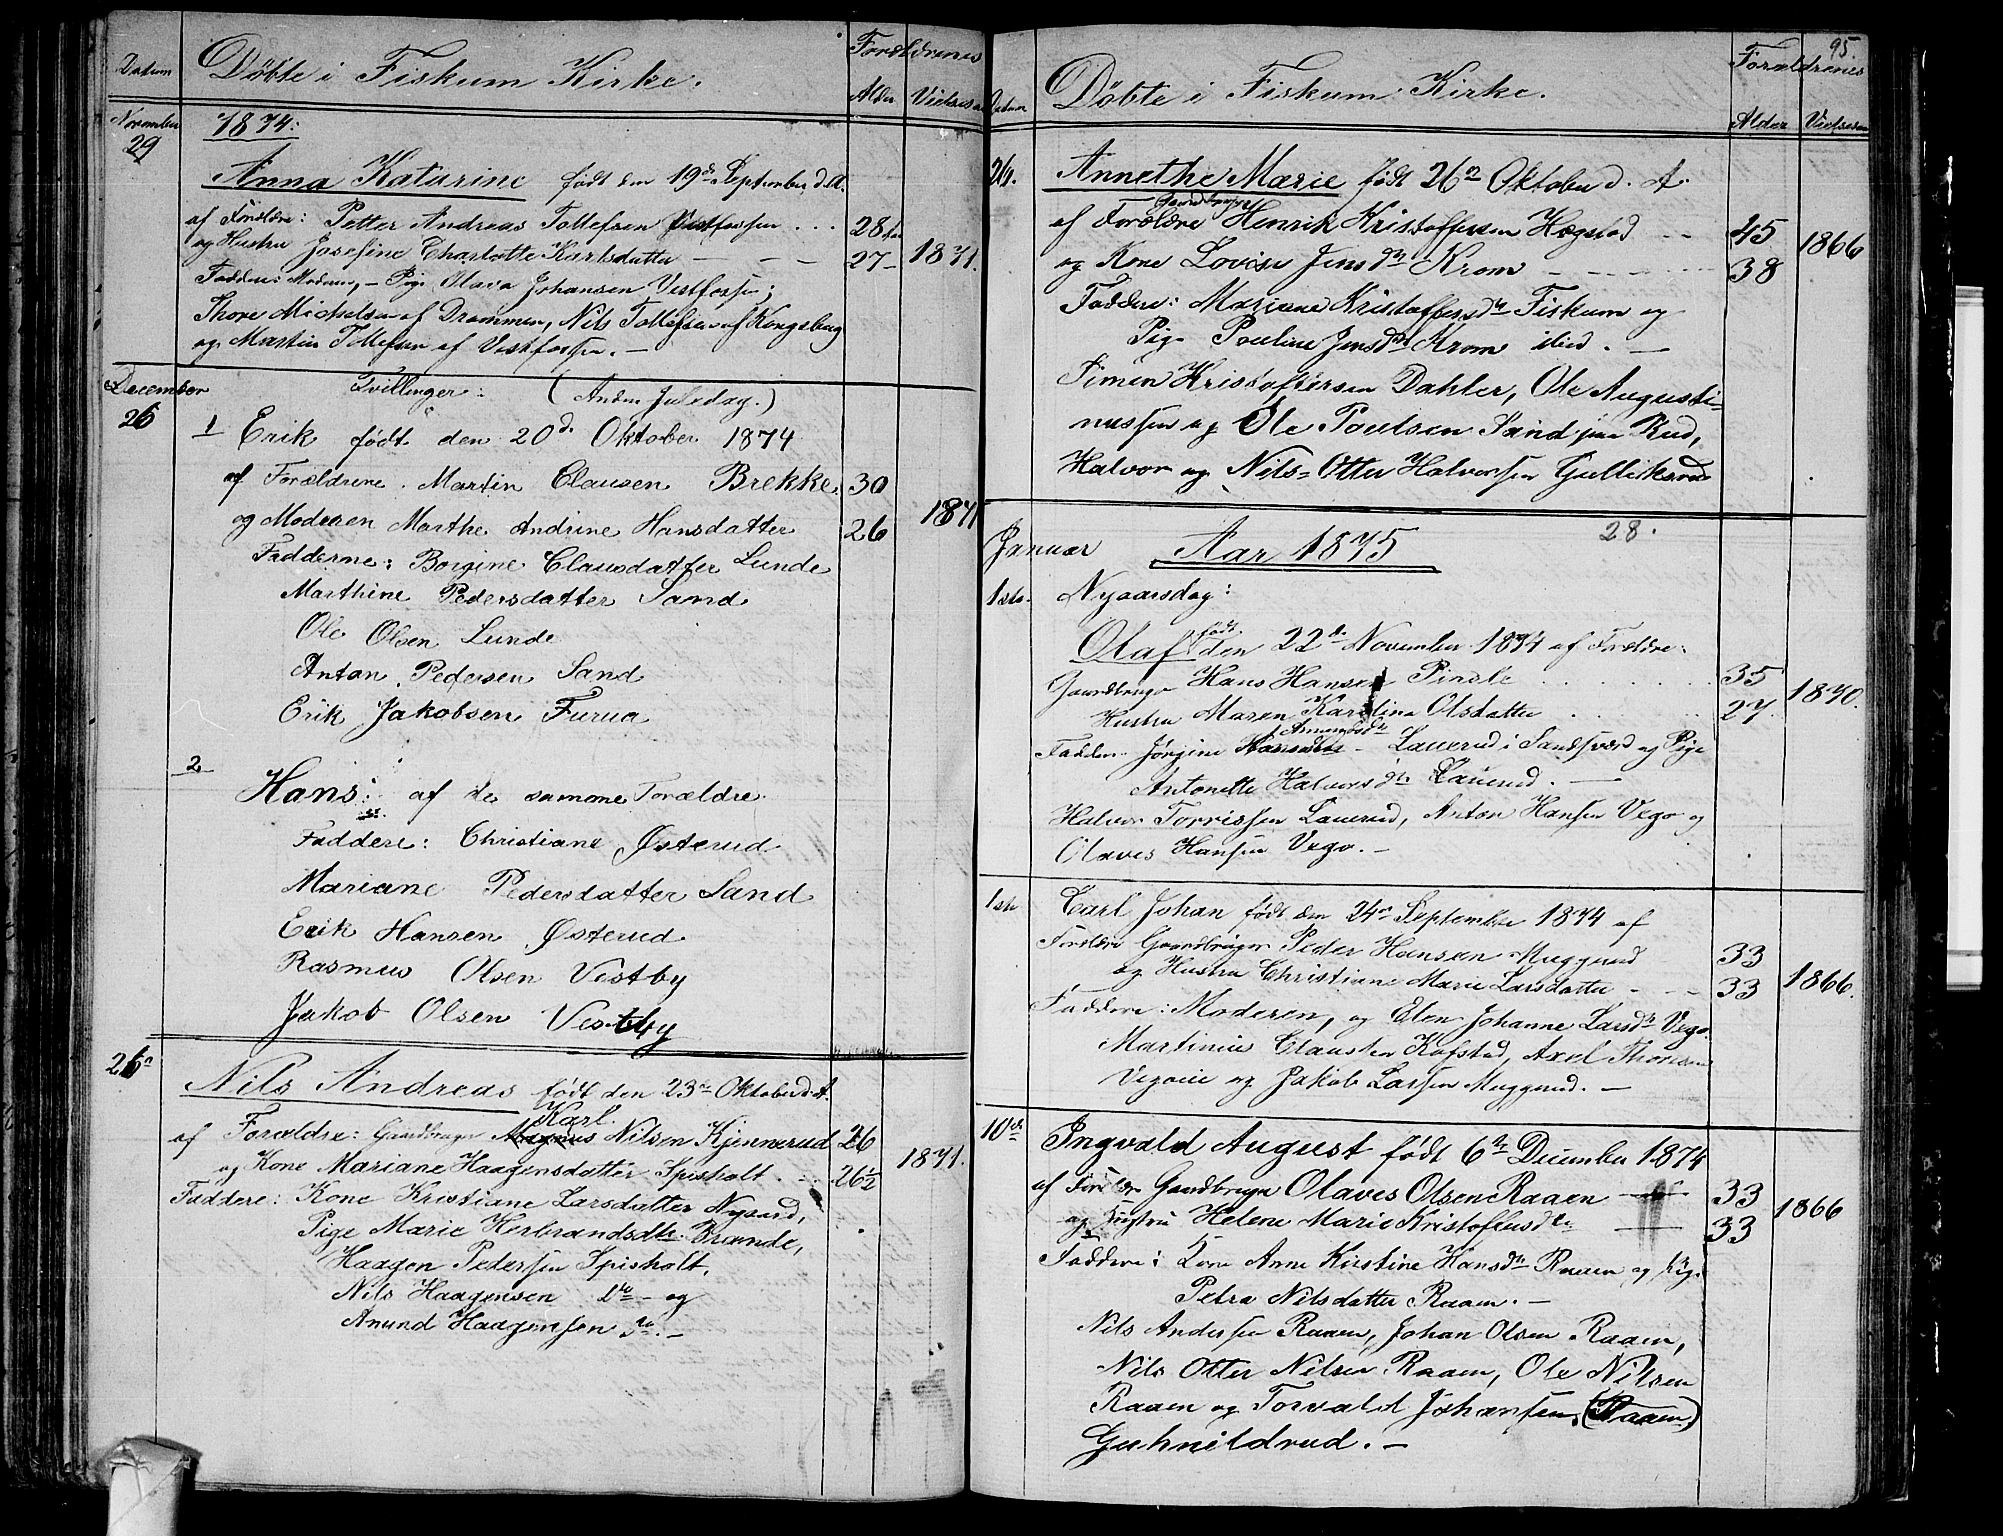 Datum
Döbte i Fiskum Kirke.
Forældrenes
Alder
Vielsesaar
November
29
1874:
Anna Katarine født den 19de September d. A.
af Forældre: Petter Andreas Tollefsen Vestfossen . . . 28 Aar
og Hustru Josefine Charlotte Karlsdatter — — — 27 — 1871.
Faddere: Moderen, — Pige Olava Johansen Vestfossen;
Thore Michelsen af Drammen, Nils Tollefsen af Kongsberg
og Martin Tollefsen af Vestfossen. —
December
26
Tvillinger: (Anden Juledag.)
1 Erik født den 20d. Oktober 1874
af Forældrene Martin Clausen Brekke 30
og Moderen Marthe Andrine Hansdatter 26 1871
Fadderne: Borgine Clausdatter Lunde
Marthine Pedersdatter Sand
Ole Olsen Lunde
Anton Pedersen Sand
Erik Jakobsen Furua
2
Hans: af de samme Forældre
Faddere: Christiane Østerud
Mariane Pedersdatter Sand
Erik Hansen Østerud
Rasmus Olsen Vestby
Jakob Olsen Vestby
26
Nils Andreas født den 23de Oktober d. A.
Karl
af Forældre: Gaardbruger Magnus Nilsen Kjennerud 26
og Kone Mariane Haagensdatter Spisholt . 26½ 1871.
Faddere: Kone Kristiane Larsdatter Nysæd,
Pige Marie Herbrandsdtr. Brande,
Haagen Pedersen Spisholt,
Nils Haagensen Do — og
Anund Haagensen Do. —
95.
Datum
Döbte i Fiskum Kirke.
Forældrenes
Alder
Vielsesaar
26.
Annethe Marie født 26de Oktober d. A.
Gaardbruger
af Forældre Henrik Kristoffersen Hægstad — — 45 1866
og Kone Lovise Jensdtr Krom — — — — 38
Faddere: Mariane Kristoffersdtr Fiskum og
Pige Pouline Jensdtr Krom ibid. —
Simen Kristoffersen Dahler, Ole Augusti-
nussen og Ole Poulsen Sand paa Rud,
Halvor og Nils-Otter Halvorsen Gulliksrud
28.
Januar
Aar 1875
1ste.
Nyaarsdag:
født
Olaf den 22de November 1874 af Forældre:
Gaardbruger Hans Hansen Pirsle . . . . . 35
Hustru Maren Karolina Olsdatter . . . 27. 1870.
Amundsdtr
Faddere Jørgine Hansdtr — Lauerud i Sandsværd og Pige
Antonette Halvorsdtr Lauerud. —
Halvor Torrissen Lauerud, Anton Hansen Vego og
Olaves Hansen Vego. —
1ste
Carl Johan født den 24de September 1874 af
Forældre Gaardbruger Peder Hansen Muggerud 33
og Hustru Christiane Marie Larsdatter — — — 33 1866.
Faddere: Moderen, og Elen Johanne Larsdtr Vego.
Martinius Clausen Kofstad, Axel Thorsen
Vegoeie og Jakob Larsen Muggerud. —
10de
Ingvald August født 6te December 1874
af Forældre Gaardbruger Olaves Olsen Raaen — 33
og Hustru Helene Marie Kristoffersdtr — 33 1866
Faddere: Kone Anne Kirstine Hansdtr Raaen og Pige
Petra Nilsdatter Raaen. —
Nils Andersen Raaen, Johan Olsen Raaen,
Nils Otter Nilsen Raaen, Ole Nilsen
Raaen og Torvald Johansen, (Raaen)
Guhnildrud. —